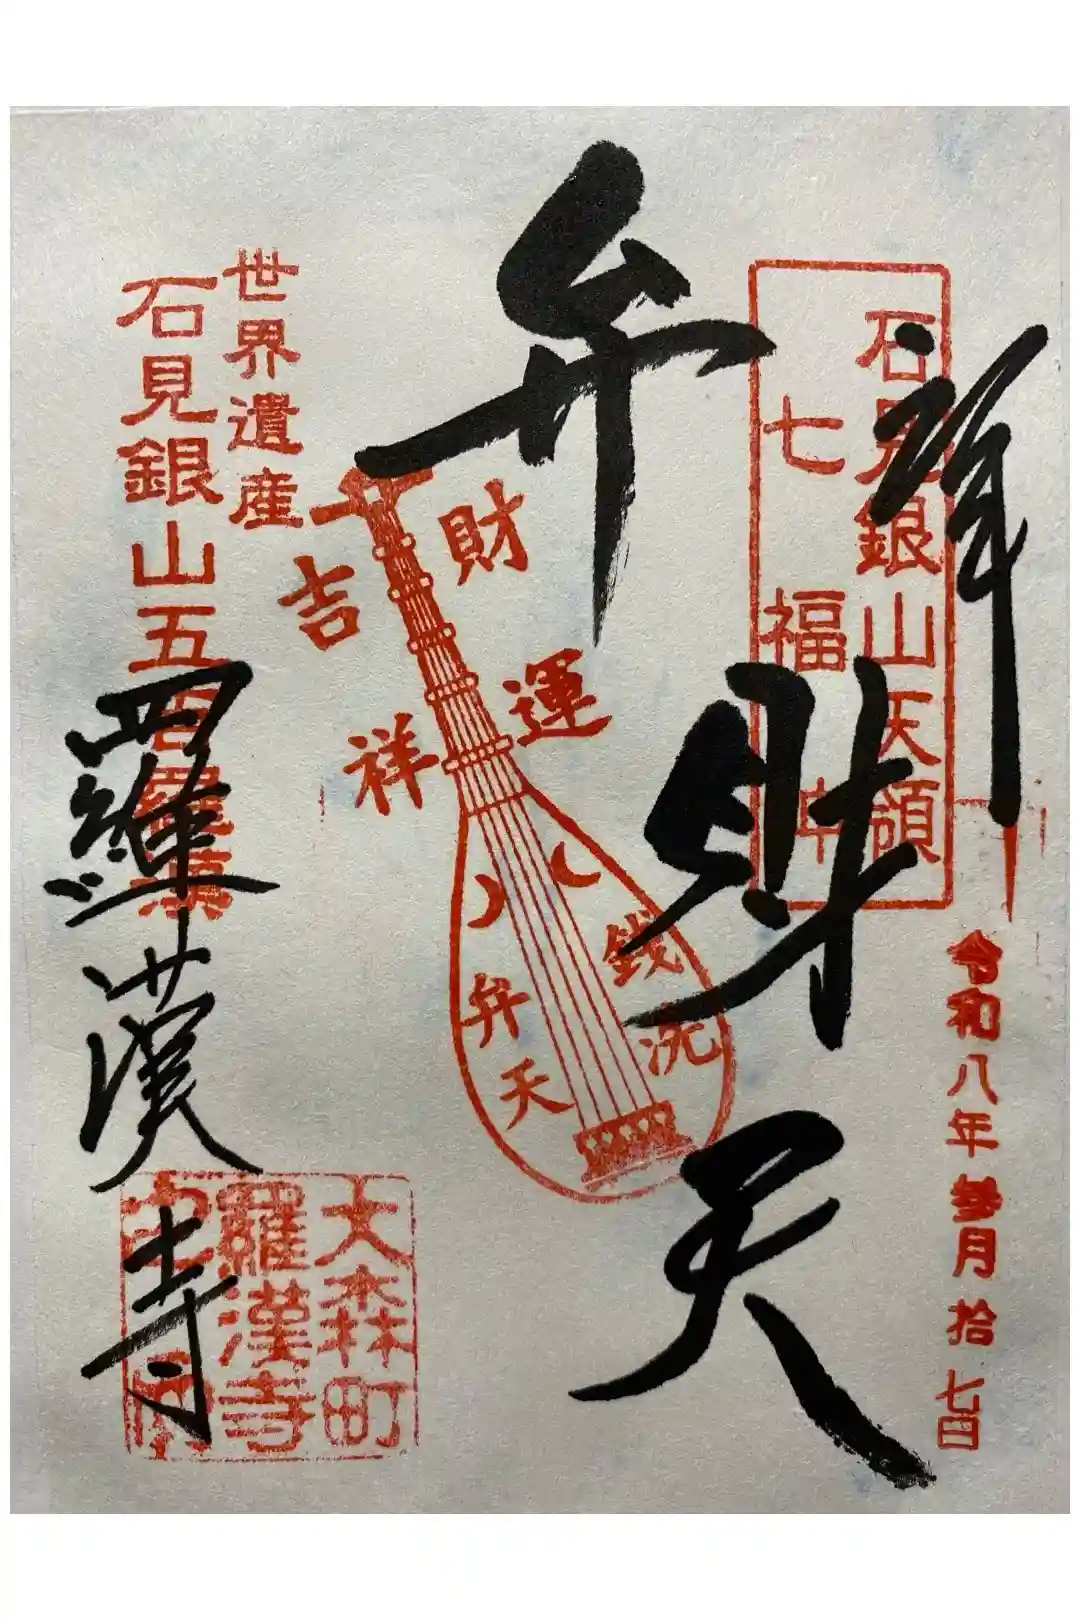 拝
石見銀山天領
七福神
令和八年参月拾七日
弁財天
財運
吉祥
銭洗
弁天
世界遺産
石見銀山五百羅漢
羅漢寺
大森町
羅漢寺